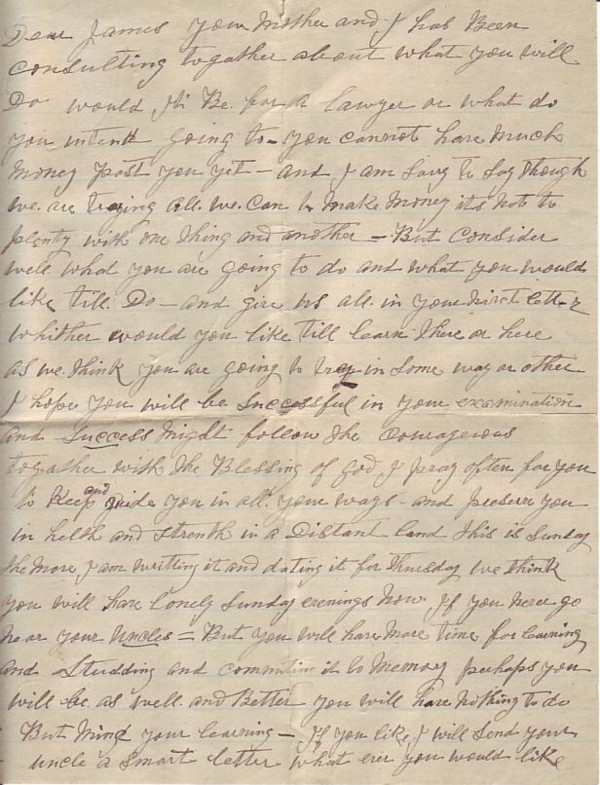 Dear James your Mother and I hab Been
consulting togather about what you will
Do would it Be for a Lawyer or what do
you intent going to - you cannot have Much
Money past you yet - and I am sory to say though
we are traying all we can to make Money its not to
plenty with one thing and another - But consider
well what you are going to do and what you would
like till Do - and give us all in your nixt letter
whither would you like till learn there or here
as we think you are going to tray in some way or other
I hope you will be successful in your examination
and success might follow the Couragerous
togather with the Blessing of god I pray often for you
to Keep and guide you in all your ways - and preserve you
in helth and strenth in a Distant land this is Sunday
the More I am writting it and dating it for thursday we think
you will have lonely Sunday evenings now If you never go
near your uncles = But you will have More time for learning
and Studding and commiting it to Memory perhaps you
will be as well and Better you will have nothing to do
But Mind your learning - If you like I will send your
uncle a smart letter what ever you would like